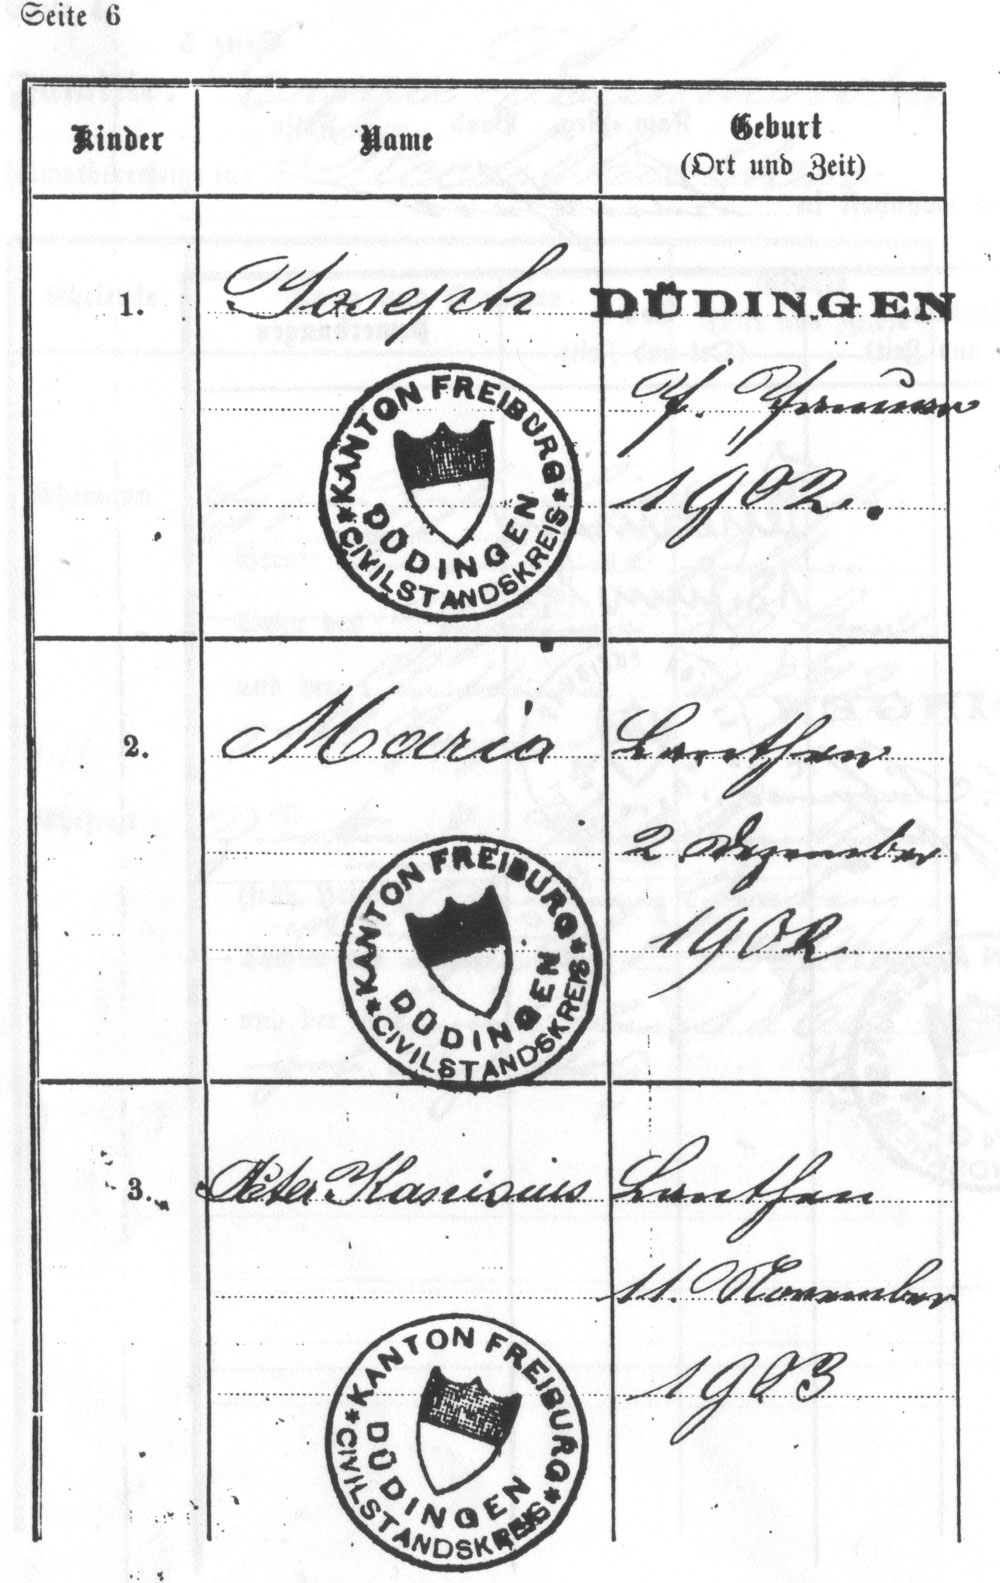 Seite 6
Kinder Name Geburt
(Ort und Zeit)
1. Joseph DÜDINGEN
Januar
1902.
KANTON FREIBURG
DÜDINGEN
*CIVILSTANDSKREIS*
2. Maria Lanthen
2 Dezember
1902
KANTON FREIBURG
DÜDINGEN
*CIVILSTANDSKREIS*
3. Peter Kanisius Lanthen
11. November
1903
KANTON FREIBURG
DÜDINGEN
*CIVILSTANDSKREIS*